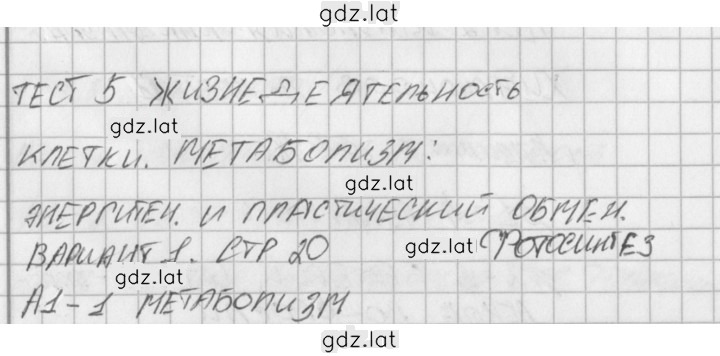 gdz.lat
ТЕСТ 5 ЖИЗНЕДЕЯТЕЛЬНОСТЬ
gdz.lat
КЛЕТКИ. МЕТАБОЛИЗМ:
gdz.lat
ЭНЕРГИТЕН. И ПЛАСТИЧЕСКИЙ ОБМЕН.
ВАРИАНТ 1. СТР 20 gdz.lat ФОТОСИНТЕЗ
gdz.lat
А1-1 МЕТАБОЛИЗМ
gdz.lat